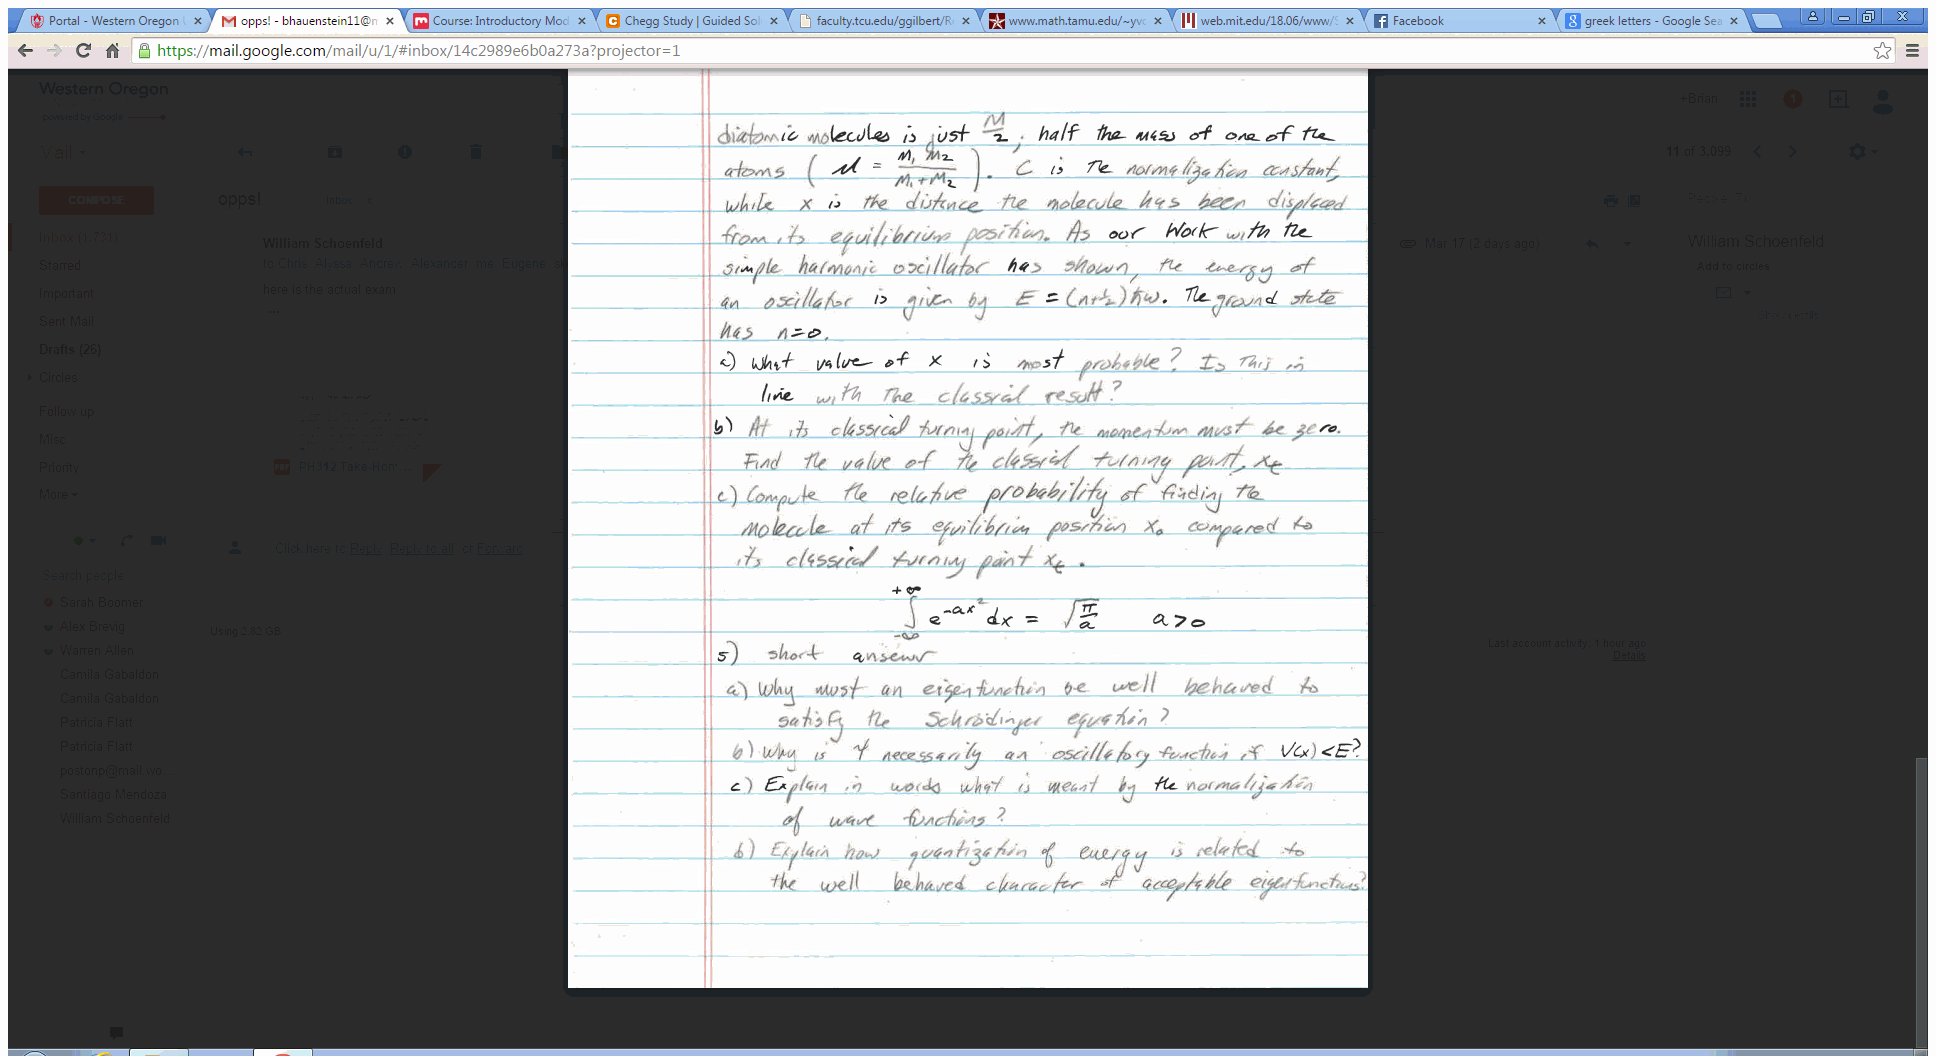 Portal - Western Oregon U
opps! - bhauenstein11@n
Course: Introductory Mod
Chegg Study | Guided Sol
faculty.tcu.edu/ggilbert/R
www.math.tamu.edu/~yvo
web.mit.edu/18.06/www/
Facebook
greek letters - Google Sea
https://mail.google.com/mail/u/1/#inbox/14c2989e6b0a273a?projector=1
Western Oregon
powered by Google
Mail
COMPOSE
Inbox (1,731)
Starred
Important
Sent Mail
Drafts (26)
Circles
Follow up
Misc
Priority
More
Search people
Sarah Boomer
Alex Brevig
Warren Allen
Camila Gabaldon
Camila Gabaldon
Patricia Flatt
Patricia Flatt
postonp@mail.wo...
Santiago Mendoza
William Schoenfeld
opps!
Inbox
William Schoenfeld
to Chris, Alyssa, Andrew, Alexander, me, Eugene
here is the actual exam
...
PH312 Take-Hom
Click here to Reply, Reply to all, or Forward
Using 2.82 GB
diatomic molecules is just M/2, half the mass of one of the
atoms ( μ = M₁ M₂ / M₁+M₂ ). C is the normalization constant,
while x is the distance the molecule has been displaced
from its equilibrium position. As our work with the
simple harmonic oscillator has shown, the energy of
an oscillator is given by E = (n+½)ħω. The ground state
has n=0.
a) What value of x is most probable? Is this in
line with the classical result?
b) At its classical turning point, the momentum must be zero.
Find the value of the classical turning point, xt
c) Compute the relative probability of finding the
molecule at its equilibrium position x₀ compared to
its classical turning point xt.
∫ +∞ -∞ e^-ax² dx = √π/a a>0
5) short ansewr
a) Why must an eigenfunction be well behaved to
satisfy the Schrödinger equation?
b) Why is ψ necessarily an oscillatory function if V(x)<E?
c) Explain in words what is meant by the normalization
of wave functions?
d) Explain how quantization of energy is related to
the well behaved character of acceptable eigenfunctions?
+Brian
1
11 of 3,099
Mar 17 (2 days ago)
William Schoenfeld
Add to circles
Last account activity: 1 hour ago
Details